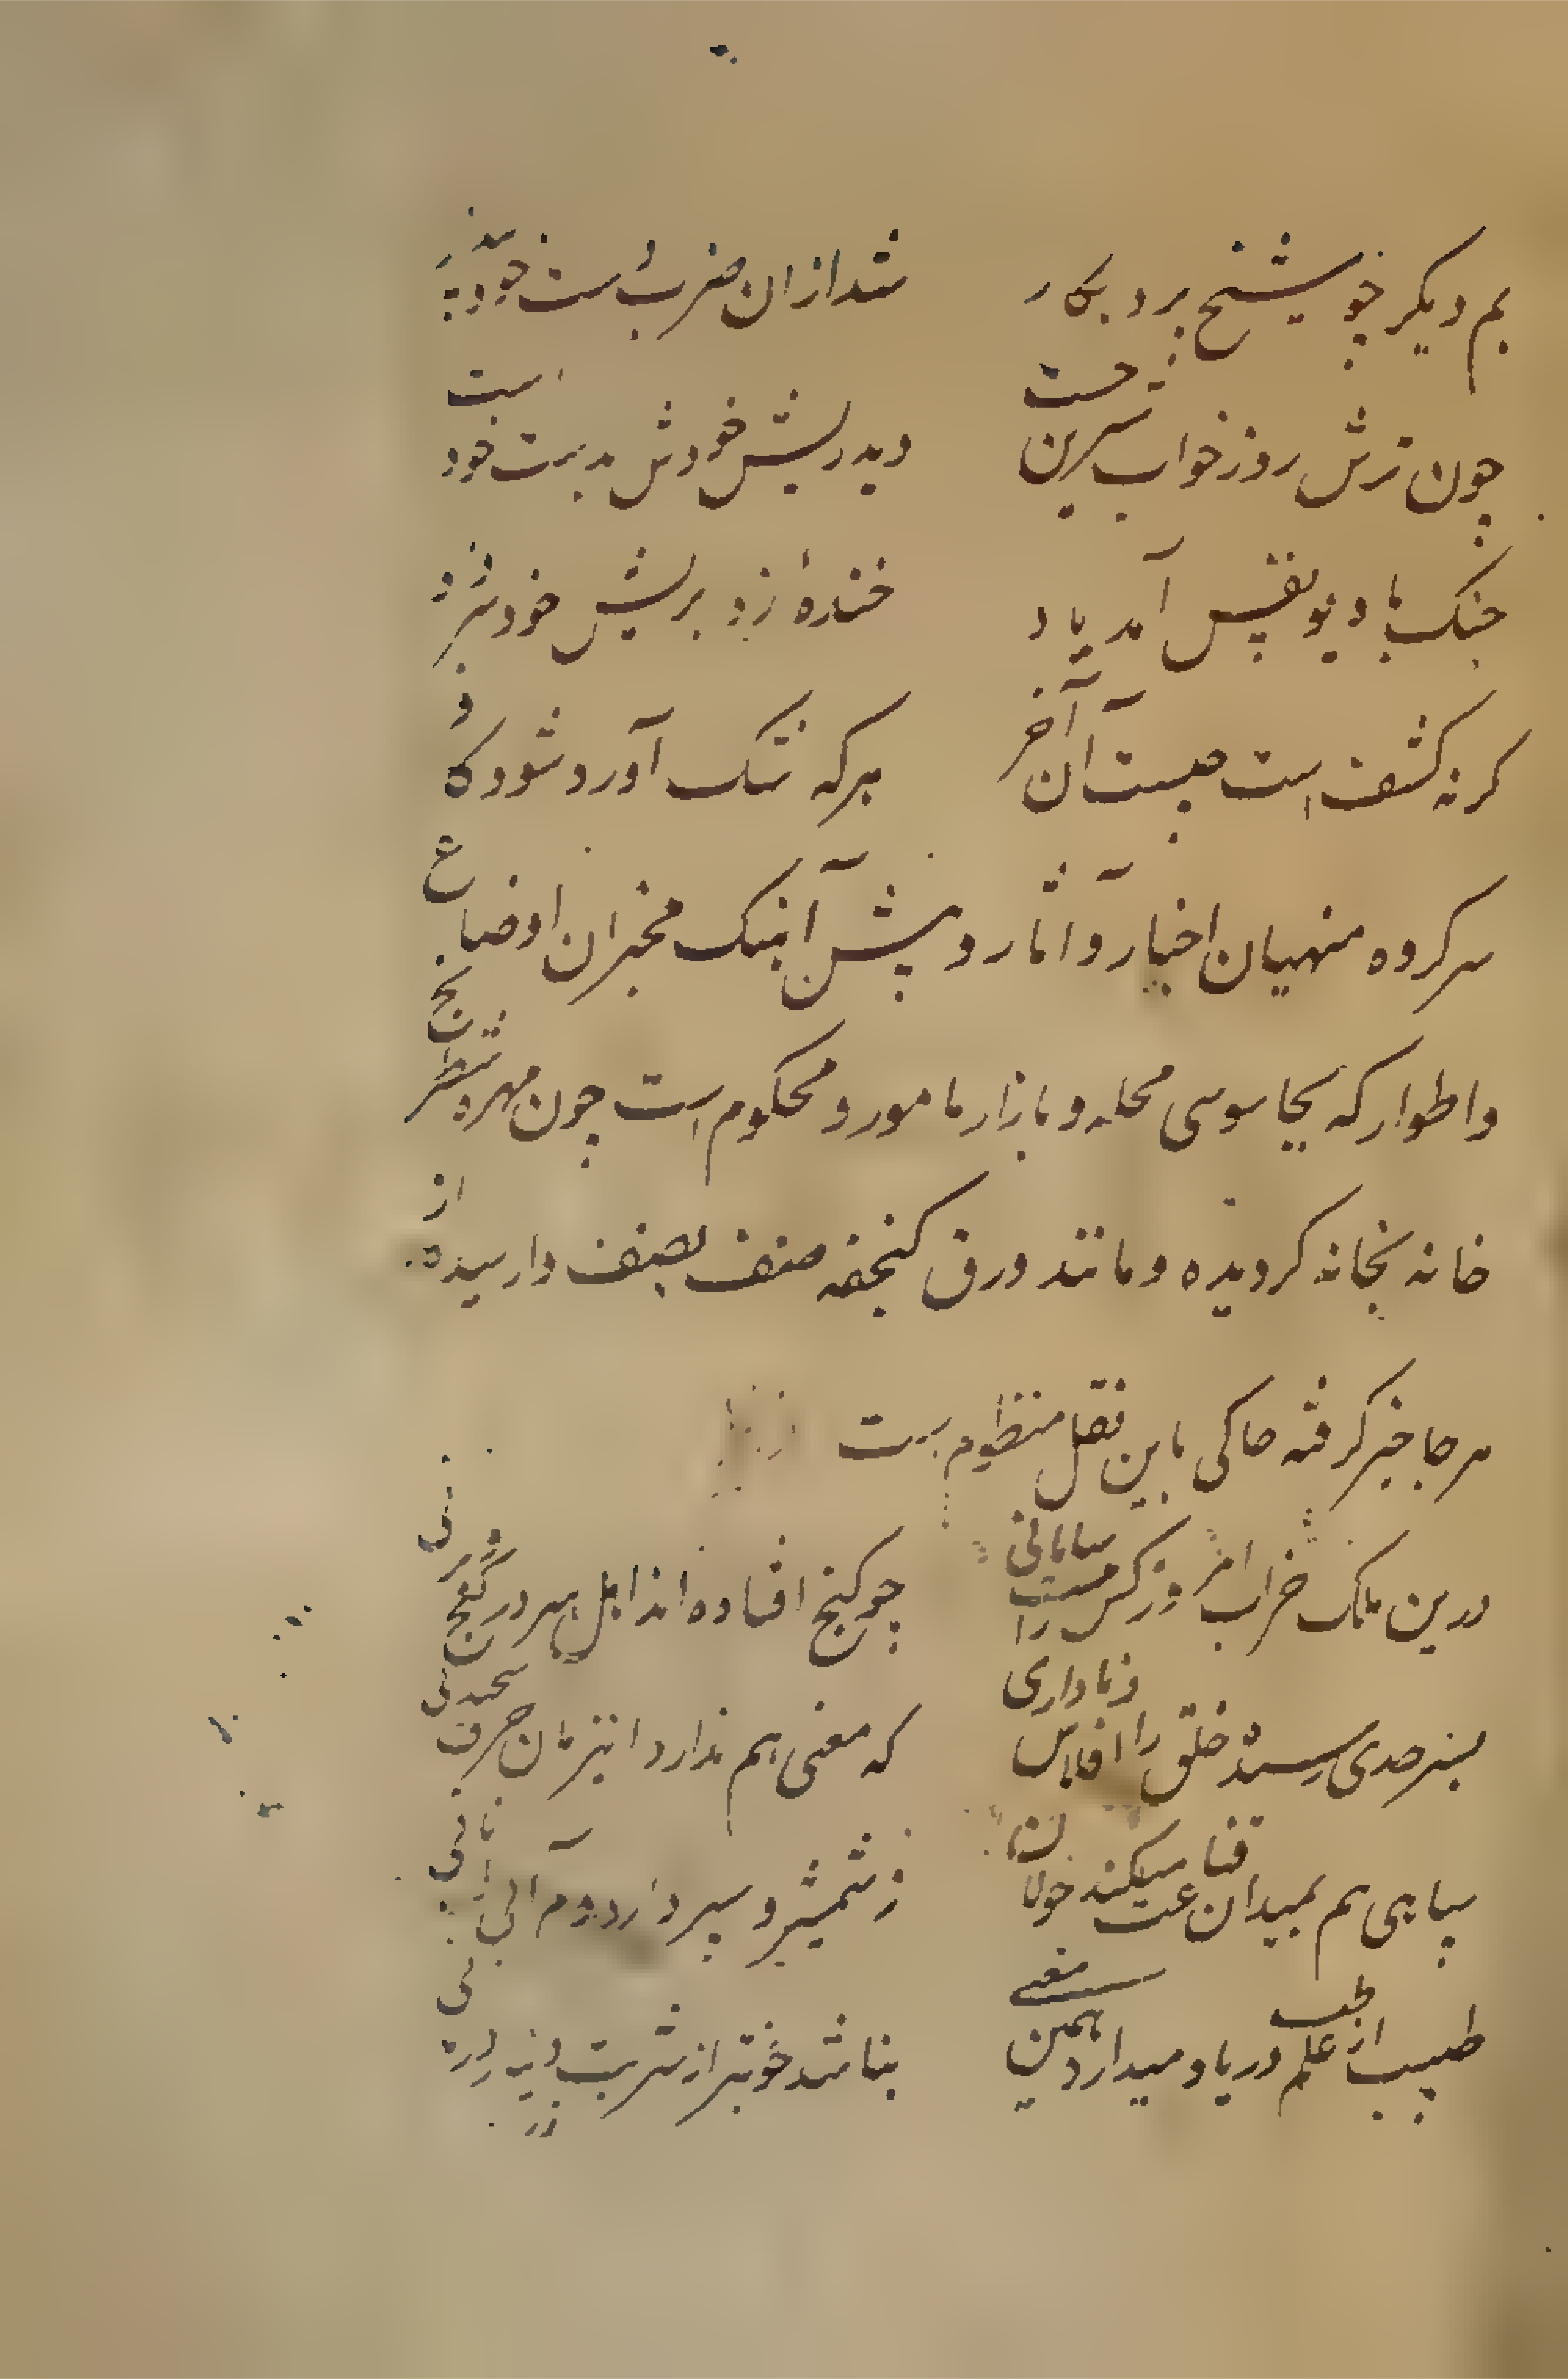 بم دیکر چو شیخ برد بکار شد ازان ضرب است خود بیدار
چون ترش روز خواب شیرین جست دید ریش خودش بدست خود است
جنک با دیو نفس آمد یاد خندهٔ زد بریش خود سر داد
کرنه کشف است چیست آن آخر هرکه شک آورد شود کافر
سرکروه منهیان اخبار و آثار و پیش آهنک مخبران اوضاع
واطوار که بجاسوسی محله و بازار مامور و محکوم است چون مهره شطرنج
خانه بخانه کردیده و مانند ورق کنجفه صنف بصنف وارسیده از
هرجا خبر گرفته حاکی باین نقل منظوم بیت
درین ملک خراب امروز کس را نیست سامانی چو کنج افتاده اند اهل هنر در کنج
بسرحدی رسیده خلق را افلاس و ناداری که معنی هم ندارد این زمان حرف سخندانی
سپاهی هم بمیدان عنا میکند جولان ز شمشیر و سپر دارد دم آبی
طبیب از علم طب در یاد میدارد همین معنی نباشد خوبتر از شربت دینار